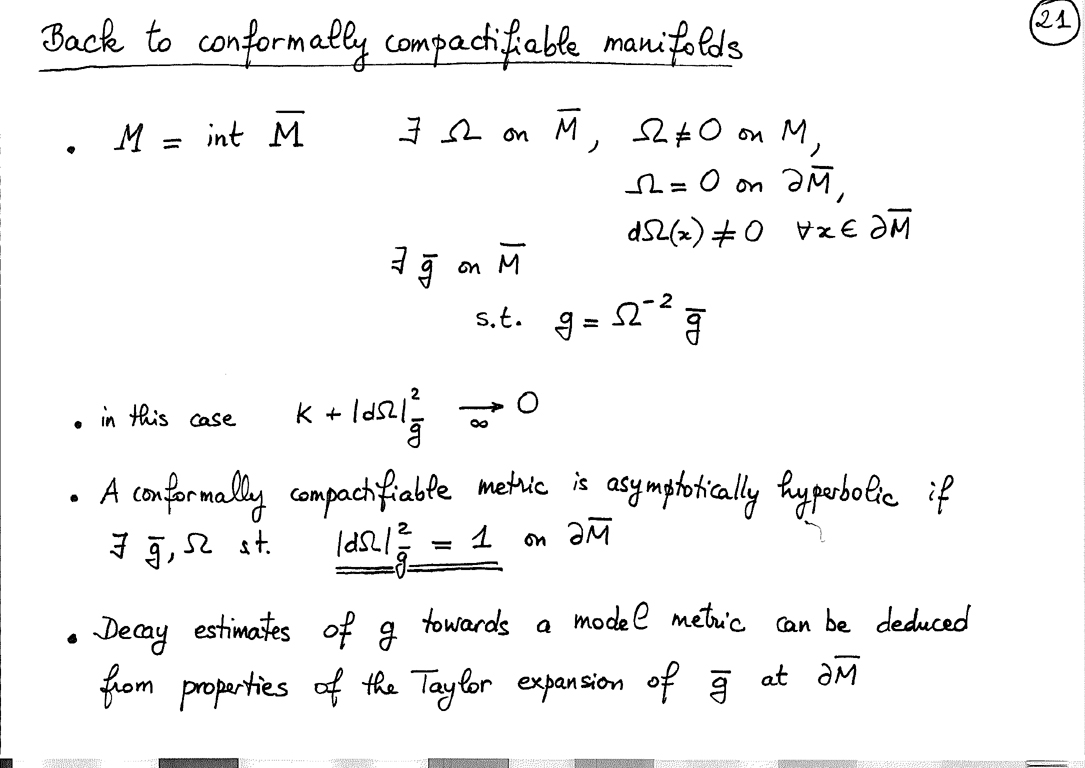 21
Back to conformally compactifiable manifolds
• M = int M̅ ∃ Ω on M̅, Ω ≠ 0 on M,
Ω = 0 on ∂M̅,
dΩ(x) ≠ 0 ∀x ∈ ∂M̅
∃ g̅ on M̅
s.t. g = Ω⁻² g̅
• in this case K + |dΩ|²_g̅ →_∞ 0
• A conformally compactifiable metric is asymptotically hyperbolic if
∃ g̅, Ω st. |dΩ|²_g̅ = 1 on ∂M̅
• Decay estimates of g towards a model metric can be deduced
from properties of the Taylor expansion of g̅ at ∂M̅